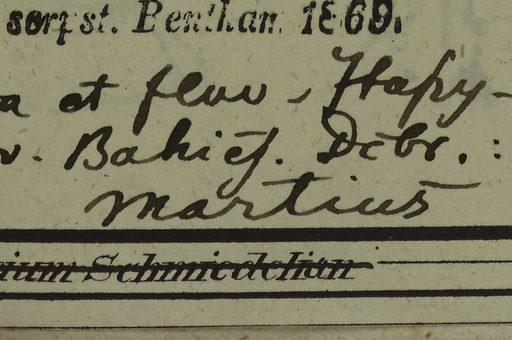 serpst. Bentham 1869.
a et fluv. Itapy-
v. Bahiẽs. Dcbr. :
Martius
rium Schmiedelian